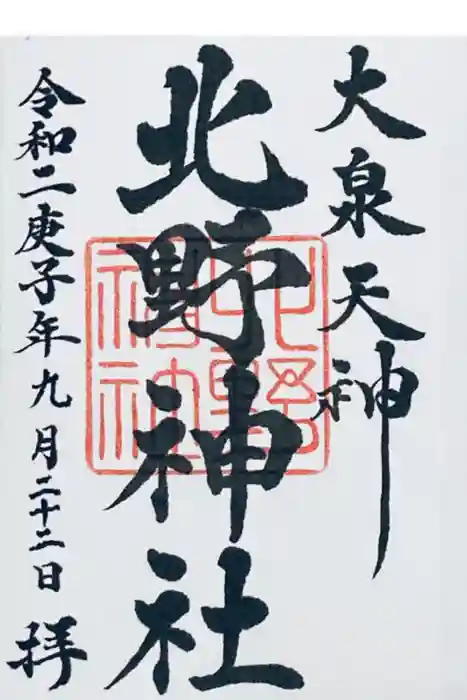 大泉天神
北野神社
令和二庚子年九月二十二日 拝